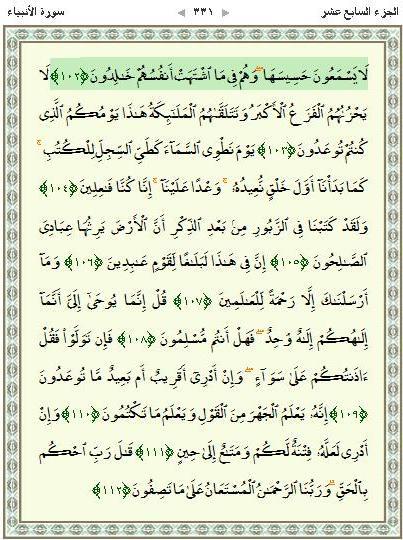 الجزء السابع عشر
◀ ٣٣١ ▶
سورة الأنبياء
لَا يَسْمَعُونَ حَسِيسَهَا ۖ وَهُمْ فِى مَا ٱشْتَهَتْ أَنفُسُهُمْ خَـٰلِدُونَ ﴿١٠٢﴾ لَا
يَحْزُنُهُمُ ٱلْفَزَعُ ٱلْأَكْبَرُ وَتَتَلَقَّىٰهُمُ ٱلْمَلَـٰٓئِكَةُ هَـٰذَا يَوْمُكُمُ ٱلَّذِى
كُنتُمْ تُوعَدُونَ ﴿١٠٣﴾ يَوْمَ نَطْوِى ٱلسَّمَآءَ كَطَىِّ ٱلسِّجِلِّ لِلْكُتُبِ ۚ
كَمَا بَدَأْنَآ أَوَّلَ خَلْقٍ نُّعِيدُهُۥ ۚ وَعْدًا عَلَيْنَآ ۚ إِنَّا كُنَّا فَـٰعِلِينَ ﴿١٠٤﴾
وَلَقَدْ كَتَبْنَا فِى ٱلزَّبُورِ مِنۢ بَعْدِ ٱلذِّكْرِ أَنَّ ٱلْأَرْضَ يَرِثُهَا عِبَادِىَ
ٱلصَّـٰلِحُونَ ﴿١٠٥﴾ إِنَّ فِى هَـٰذَا لَبَلَـٰغًا لِّقَوْمٍ عَـٰبِدِينَ ﴿١٠٦﴾ وَمَآ
أَرْسَلْنَـٰكَ إِلَّا رَحْمَةً لِّلْعَـٰلَمِينَ ﴿١٠٧﴾ قُلْ إِنَّمَا يُوحَىٰٓ إِلَىَّ أَنَّمَآ
إِلَـٰهُكُمْ إِلَـٰهٌ وَٰحِدٌ ۖ فَهَلْ أَنتُم مُّسْلِمُونَ ﴿١٠٨﴾ فَإِن تَوَلَّوْا۟ فَقُلْ
ءَاذَنتُكُمْ عَلَىٰ سَوَآءٍ ۖ وَإِنْ أَدْرِىٓ أَقَرِيبٌ أَم بَعِيدٌ مَّا تُوعَدُونَ
﴿١٠٩﴾ إِنَّهُۥ يَعْلَمُ ٱلْجَهْرَ مِنَ ٱلْقَوْلِ وَيَعْلَمُ مَا تَكْتُمُونَ ﴿١١٠﴾ وَإِنْ
أَدْرِى لَعَلَّهُۥ فِتْنَةٌ لَّكُمْ وَمَتَـٰعٌ إِلَىٰ حِينٍ ﴿١١١﴾ قَـٰلَ رَبِّ ٱحْكُم
بِٱلْحَقِّ ۗ وَرَبُّنَا ٱلرَّحْمَـٰنُ ٱلْمُسْتَعَانُ عَلَىٰ مَا تَصِفُونَ ﴿١١٢﴾